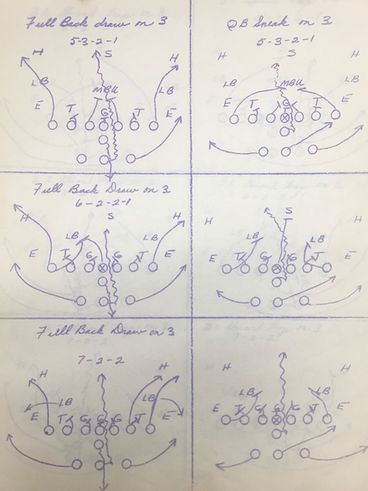 Full Back draw on 3
5-3-2-1
H S H
LB MBU LB
E T G T E
QB Sneak on 3
5-3-2-1
H S H
LB MBU LB
E T G T E
Full Back Draw on 3
6-2-2-1
H S H
LB LB
E T G G T E
S
H H
LB LB
E T G G T E
Full Back Draw on 3
7-2-2
H H
LB LB
E T G G G T E
H H
LB LB
E T G G G T E